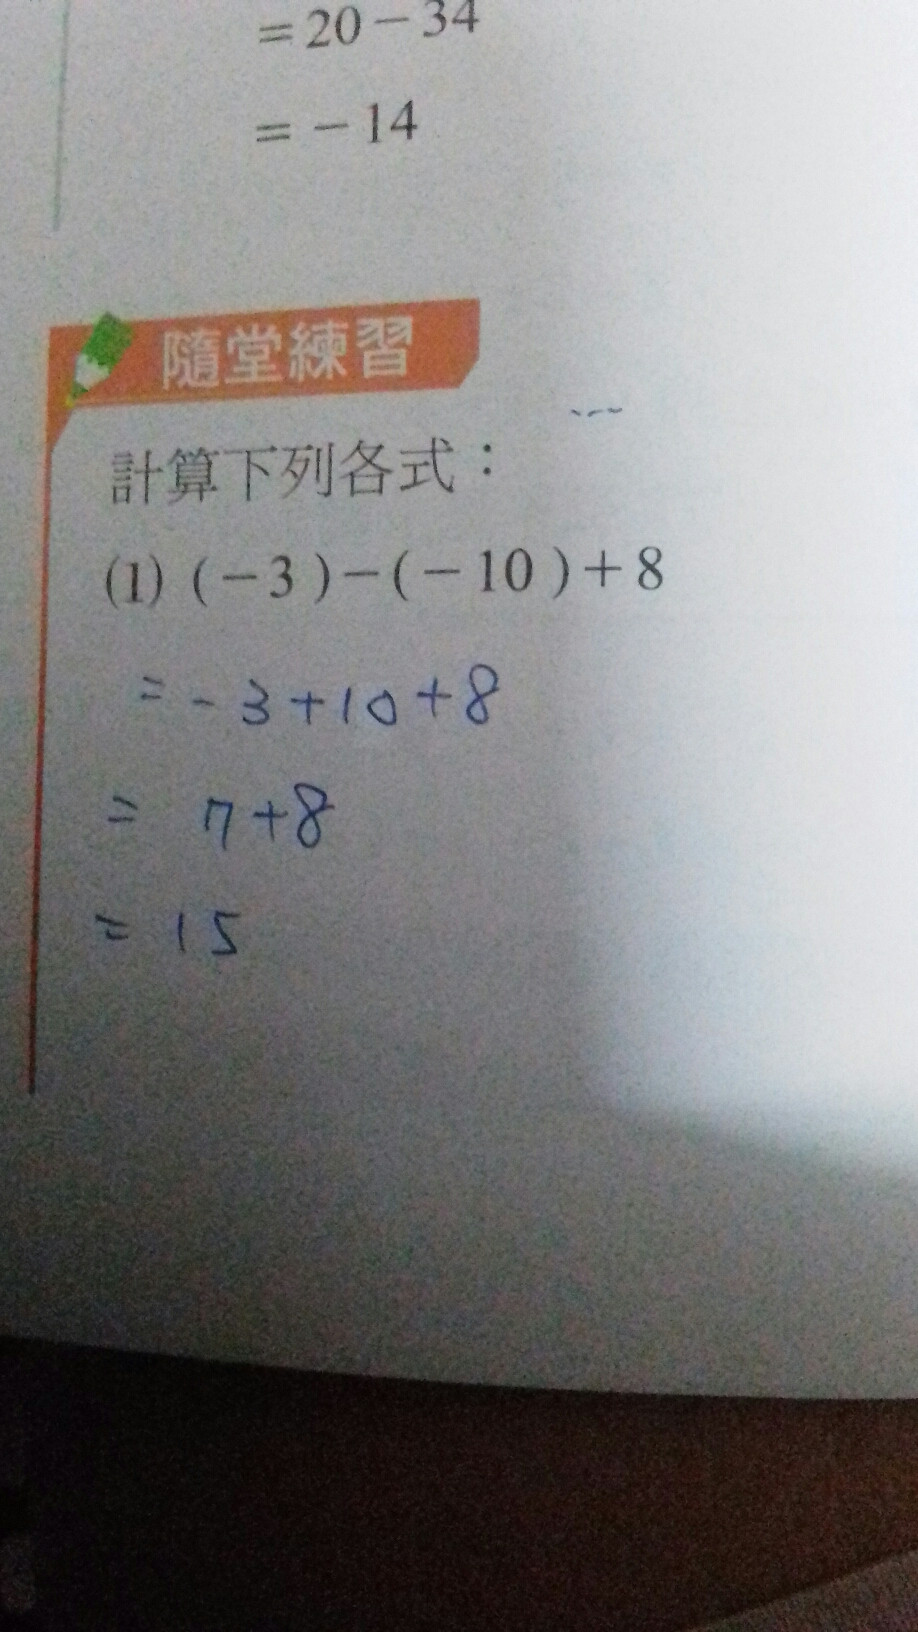 =20-34
=-14
隨堂練習
計算下列各式：
(1) (-3)-(-10)+8
=-3+10+8
= 7+8
= 15